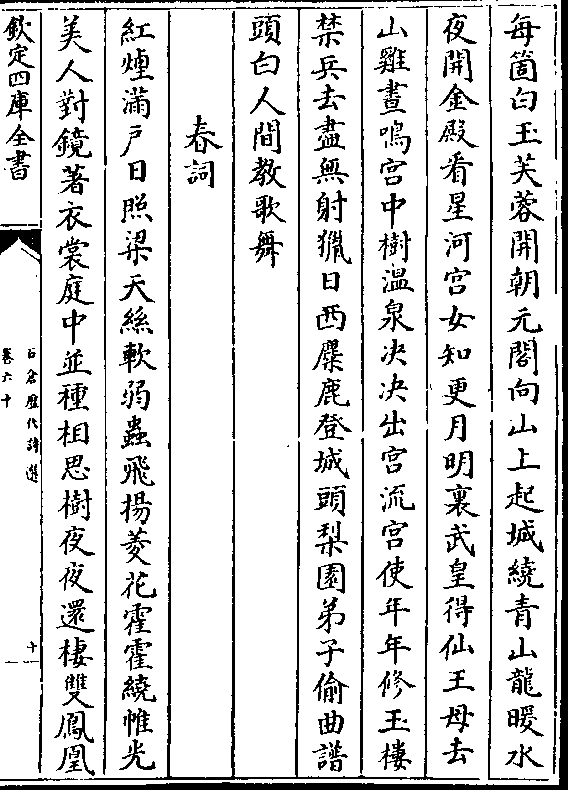 每箇白玉芙蓉開朝元閣向山上起城繞青山龍暖水
夜開金殿看星河宫女知更月明裏武皇得仙王母去
山雞晝鳴宫中樹温泉决决出宫流宫使年年修玉樓
禁兵去盡無射獵日西麋鹿登城頭梨園弟子偷曲譜
頭白人間教歌舞
春詞
紅煙滿户日照梁天絲軟弱蟲飛揚菱花霍霍繞帷光
美人對鏡著衣裳庭中並種相思樹夜夜還棲雙鳳凰
欽定四庫全書
石倉歷代詩選
卷六十
十一